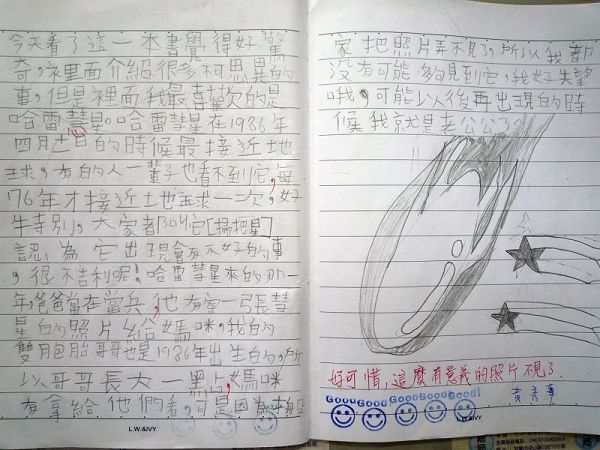 今天看了這一本書覺得好驚
奇,裡面介紹很多柯思異的
事,但是裡面我最喜歡的是
哈雷彗星。哈雷彗星在1986年
四月十一日的時候最接近地
球,有的人一輩子也看不到它,每
76年才接近土地球一次,好
牛特別,大家都叫它[掃把星]
認為它出現會有不好的事
,很不吉利呢!哈雷彗星來的那一
年,爸爸當在當兵,他有寄一張彗
星的照片給媽咪,我的
雙胞胎哥哥也是1986年出生的,所
以哥哥長大一點,媽咪
有拿給他們看,可是因為
家把照片弄不見了,所以我都
沒有可能夠見到它,我好失望
哦,可能以後再出現的時
候我就是老公公了。
好可惜,這麼有意義的照片不見了.
Good Good Good Good Good!
L.W.&IVY
L.W.&IVY